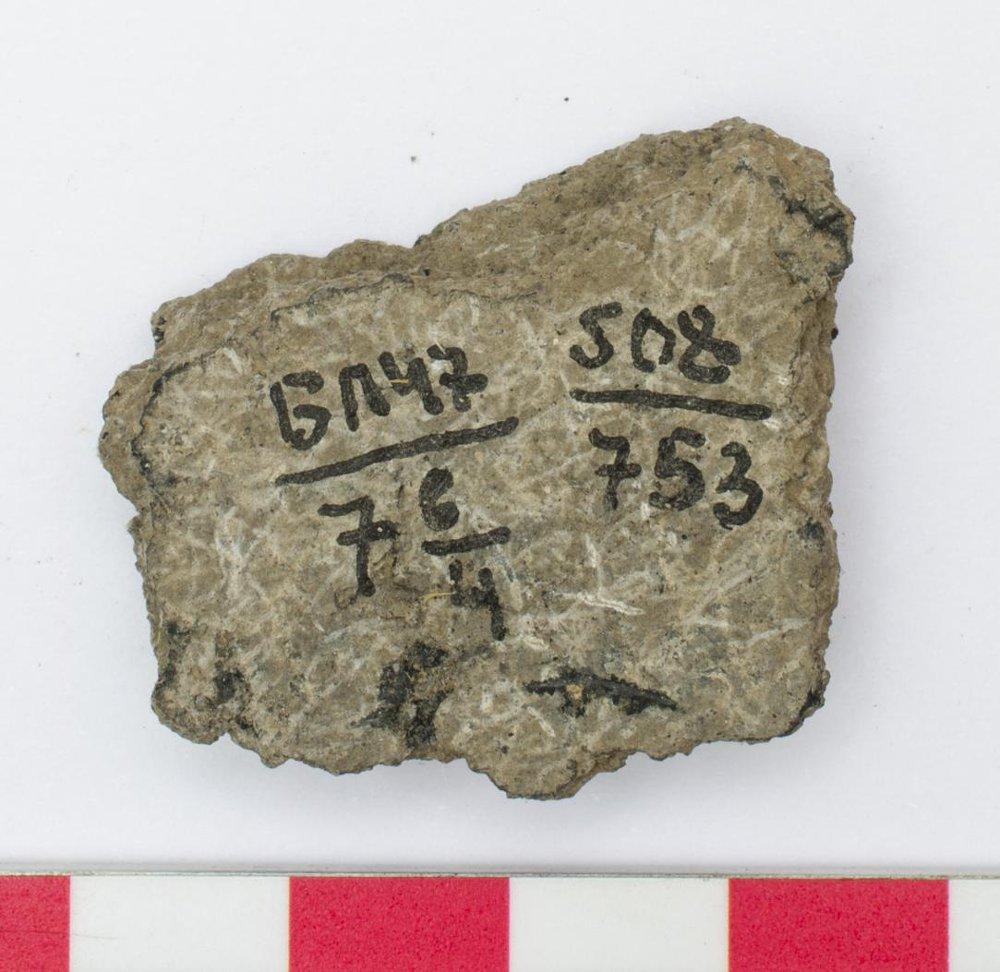 БП47
7 6/4
508
753